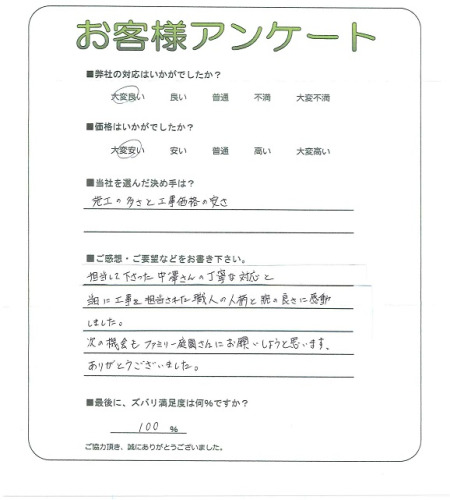 お客様アンケート
■弊社の対応はいかがでしたか？
大変良い 良い 普通 不満 大変不満
■価格はいかがでしたか？
大変安い 安い 普通 高い 大変高い
■当社を選んだ決め手は？
完工の多さと工事価格の安さ
■ご感想・ご要望などをお書き下さい。
担当して下さった中澤さんの丁寧な対応と
当に工事を担当された職人の人柄と腕の良さに感動
しました。
次の機会もファミリー庭園さんにお願いしようと思います。
ありがとうございました。
■最後に、ズバリ満足度は何%ですか？
100 %
ご協力頂き、誠にありがとうございました。